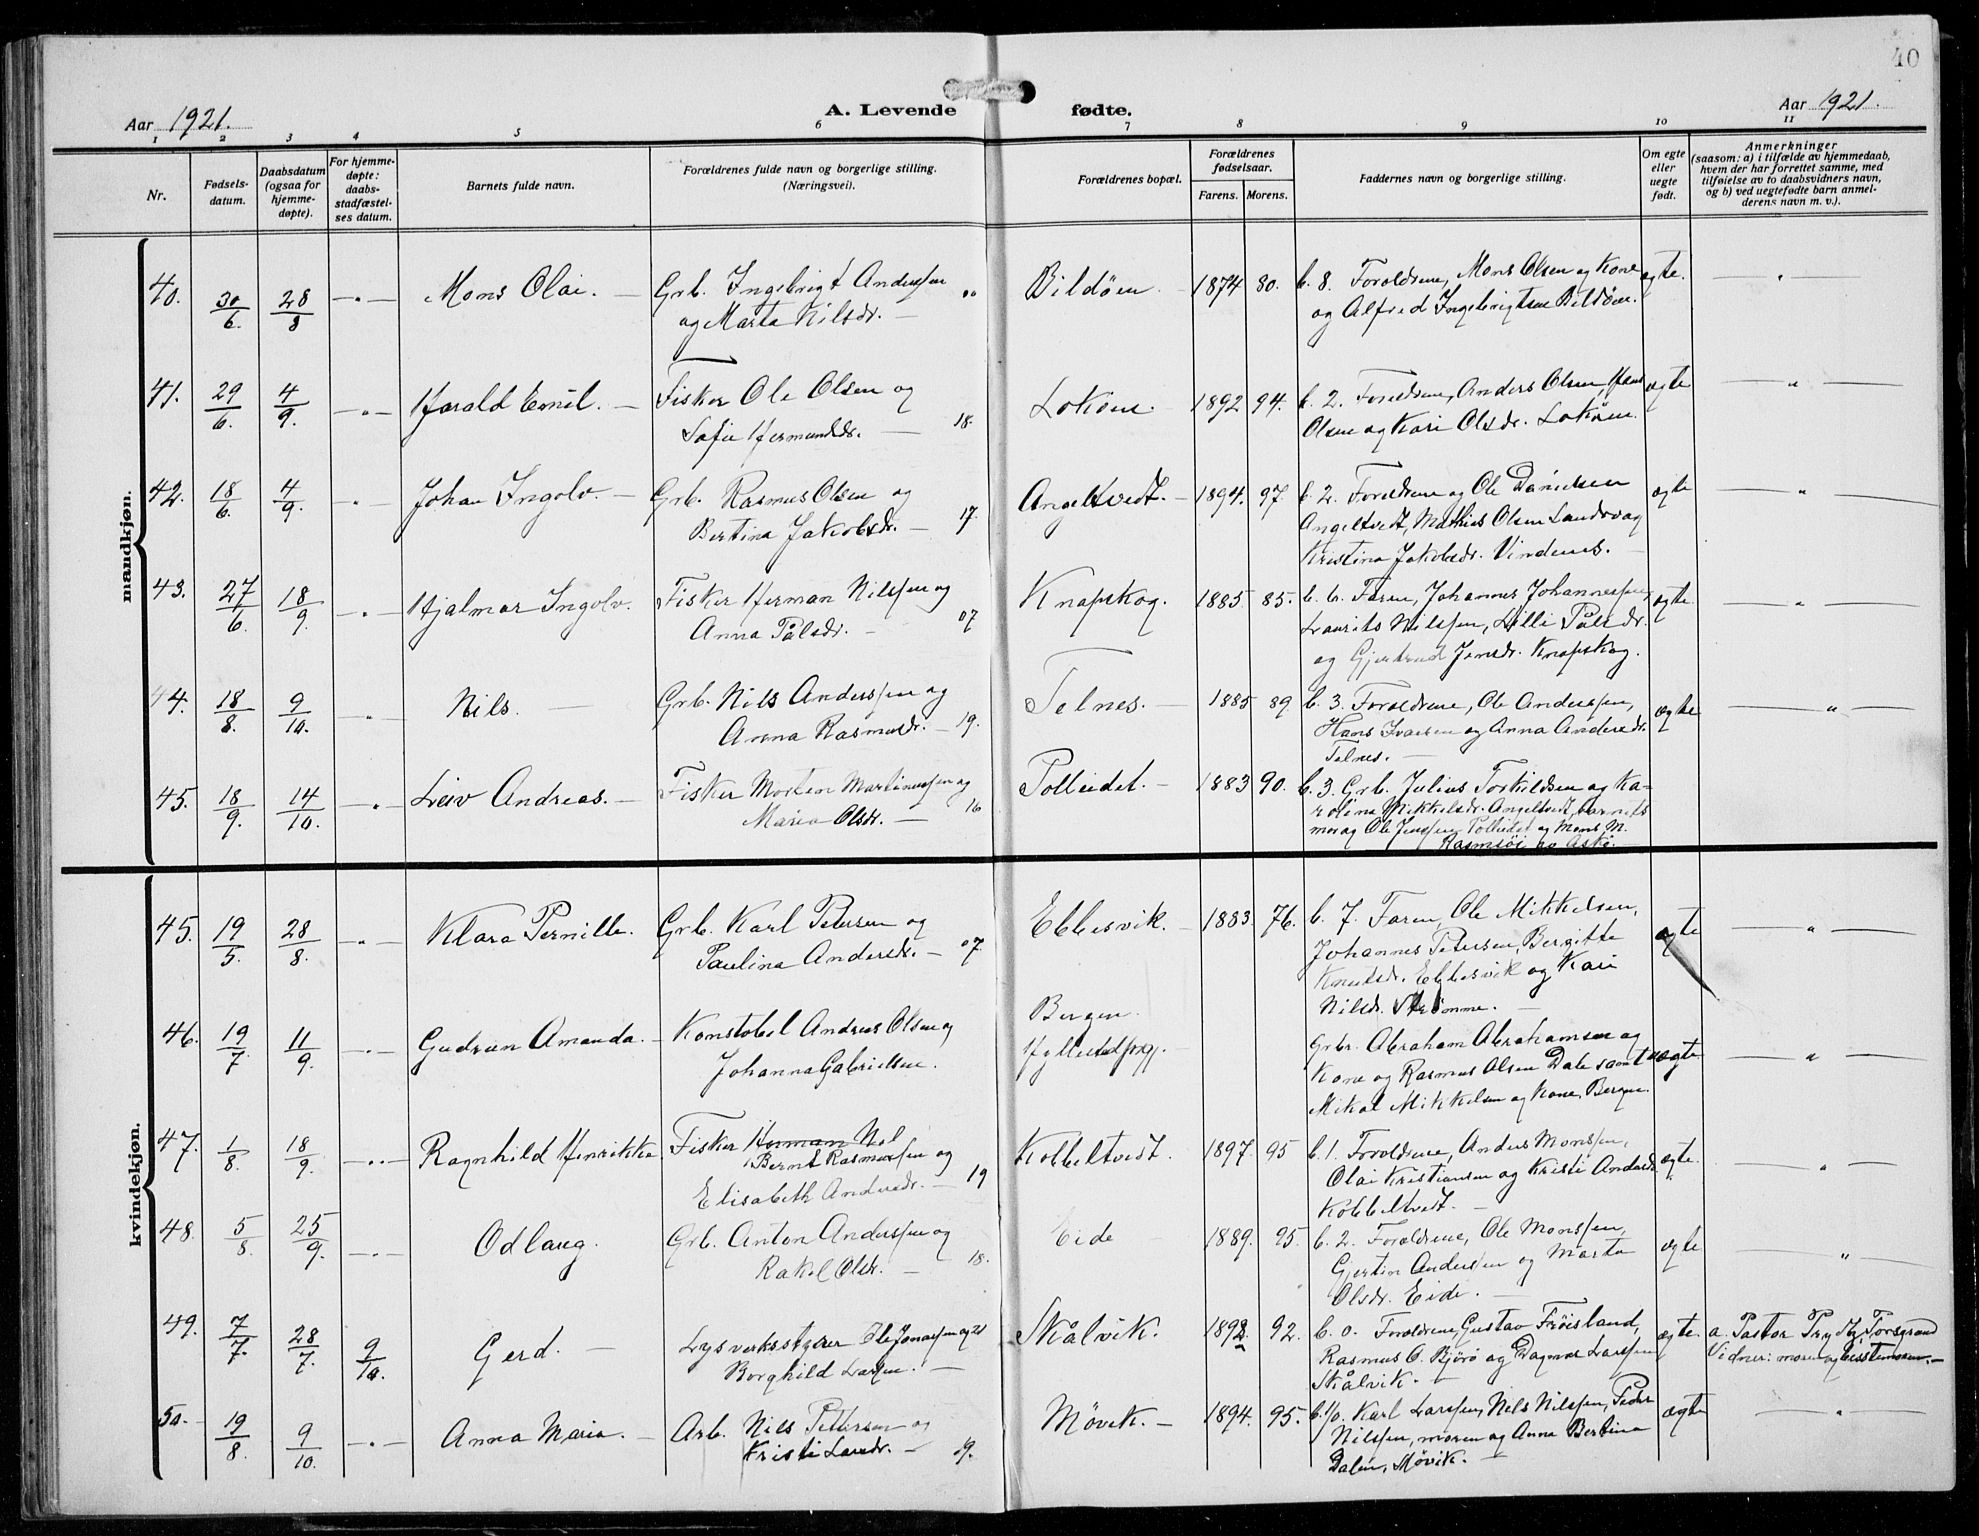 40
Aar 1921.
A. Levende fødte.
Aar 1921.
1 2 3 4 5 6 7 8 9 10 11
Nr.
Fødsels-
datum.
Daabsdatum
(ogsaa for
hjemme-
døpte).
For hjemme-
døpte:
daabs-
stadfæstel-
ses datum.
Barnets fulde navn.
Forældrenes fulde navn og borgerlige stilling.
(Næringsvei).
Forældrenes bopæl.
Forældrenes
fødselsaar.
Farens. Morens.
Faddernes navn og borgerlige stilling.
Om egte
eller
uegte
født.
Anmerkninger
(saasom: a) i tilfælde av hjemmedaab,
hvem der har forrettet samme, med
tilføielse av to daabsvidners navn,
og b) ved uegtefødte barn anmel-
derens navn m. v.).
mandkjøn.
40. 30/6. 28/8 —„— Mons Olai. — Grb. Ingebrigt Anderssen
og Marta Nilsdr. —
Bildöen 1874 80. b. 8. Foreldrene, Mons Olsen og Kone
og Alfred Ingebrigtsen Bildöen.
egte. —„—
41. 29/6. 4/9. —„— Harald Emil. — Fisker Ole Olsen og
Sofie Hermundsdr. — 18.
Loköen. 1892 94. b. 2. Foreldrene, Anders Olsen, Hans
Olsen og Kari Olsdr. Loköen.
egte —„—
42. 18/6. 4/9. —„— Johan Ingolv. — Grb. Rasmus Olsen og
Bertina Jakobsdr. — 17.
Angeltvedt. — 1894. 97. b. 2. Foreldrene og Ole Danielsen
Angeltvedt, Mathias Olsen Landro og
Kristina Jakobsdr. Vindenes. —
egte —„—
43. 27/6. 18/9. —„— Hjalmar Ingolv. Fisker Herman Nilssen og
Anna Pålsdr. — 07
Knapskog. 1885 85. b. 6. Faren, Johannes Johannessen,
Laurits Nilssen, Lilli Pålsdr.
og Gjertrud Jensdr. Knapskog.
egte. —„—
44. 18/8. 9/10. —„— Nils. — Grb. Nils Anderssen og
Anna Rasmusdr. — 19.
Telnes. — 1885 89 b. 3. Foreldrene, Ole Anderssen,
Hans Ivarsen og Anna Andersdr.
Telnes. —
egte —„—
45. 18/9. 14/10. —„— Leiv Andreas. — Fisker Morten Martinussen og
Maria Olsdr. — 16
Polleidet. — 1883 90. b. 3. Grb. Julius Torkildsen og Ka-
rolina Mikkelsdr. Angeltvedt, barnets
mor og Ole Jenssen Polleidet og Mons M.
Rasmsöi av Askö.
kvindekjøn.
45. 19/5. 28/8. —„— Klara Pernille. Grb. Karl Petersen og
Paulina Andersdr. — 07.
Ebbesvik. — 1883. 76. b. 7. Faren, Ole Mikkelsen,
Johannes Petersen, Bergitte
Knutsdr. Ebbesvik og Kari
Nilsdr. Strömme. —
egte —„—
46. 19/7. 11/9. —„— Gudrun Amanda. — Konstabel Andreas Olsen og
Johanna Gabrielsen.
Bergen.
Grbr. Abraham Abrahamsen og
Kone og Rasmus Olsen Dale samt
Mikal Mikkelsen og Kone, Bergen.
egte —„—
47. 1/8. 18/9. —„— Ragnhild Henrikka Fisker Herman Nil
Bernt Rasmussen og
Elisabeth Andersdr. — 19
Kobbeltvedt. 1897. 95 b. 1. Foreldrene, Anders Monssen,
Olai Kristiansen og Kristi Andersdr.
Kobbeltvedt. —
egte. —„—
48. 5/8. 25/9. —„— Odlaug. Grb. Anton Anderssen og
Rakel Olsdr. — 18.
Eide — 1889. 95. b. 2. Foreldrene, Ole Monssen,
Gjertin Anderssen og Marta
Olsdr. Eide. —
egte —„—
49. 7/7. 28/7. 9/10. Gerd. — Lysverksstyrer Ole Jonassen og 21
Borghild Larssen. —
Skålvik. 1892 92. b. 0. Foreldrene, Gustav Fröisland,
Rasmus O. Björö og Dagmar Larssen
Skålvik. —
egte. a. Pastor Prydtz, Torsgrund
Vidner: moren og bestemoren. —
50. 19/8. 9/10. —„— Anna Maria. — Arb. Nils Pettersen og
Kristi Larsdr. — 19.
Mövik. — 1894. 95. b. 1/0. Karl Larssen, Nils Nilssen, Peder
Nilssen, moren og Anna Bertina
Dalen, Mövik. —
egte —„—